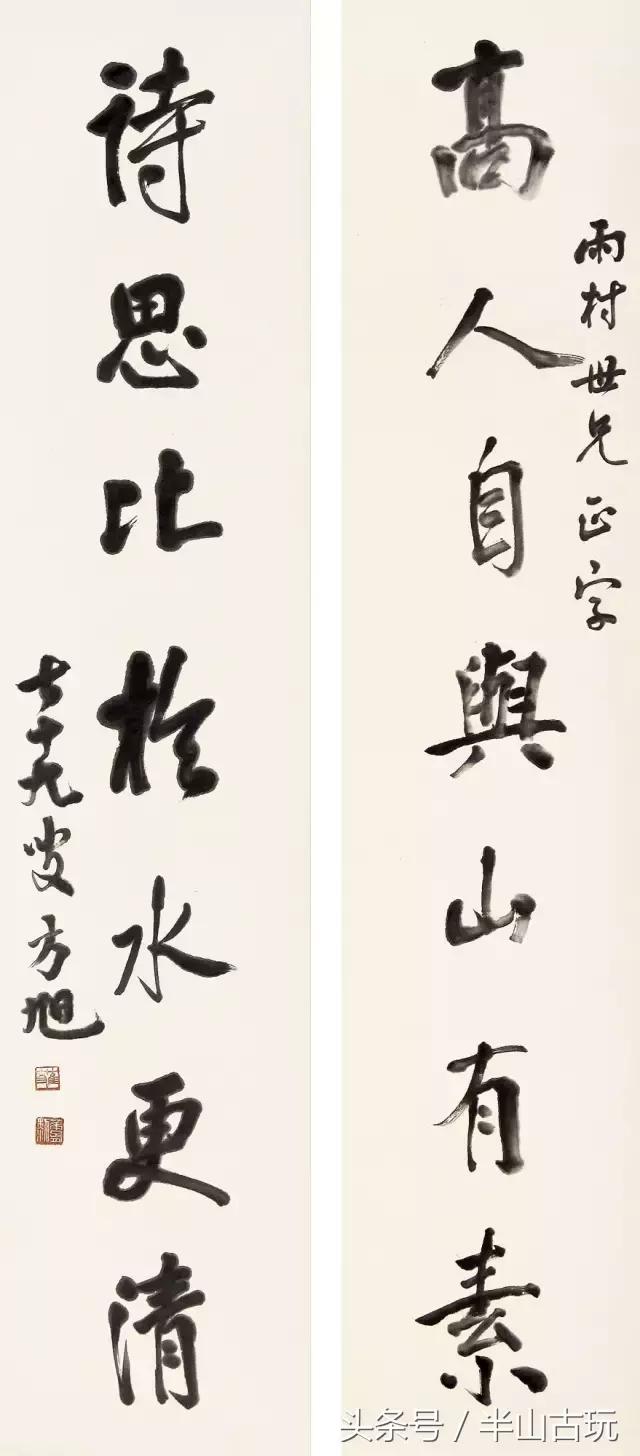 雨村世兄正字
高人自與山有素
詩思比於水更清
七十九叟方旭
头条号／半山古玩